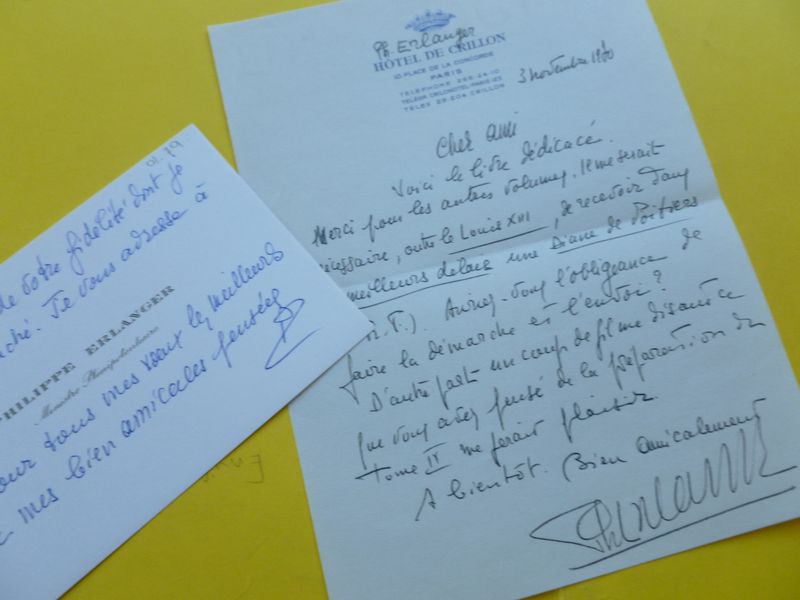 01.79
de votre fidélité dont je
Je vous adresse à
PHILIPPE ERLANGER
Ministre Plénipotentiaire
tous mes vœux les meilleurs
mes bien amicales pensées
Ph. Erlanger
HÔTEL DE CRILLON
10 PLACE DE LA CONCORDE
PARIS
TÉLÉPHONE 265-24-10
TÉLEX 29.204 CRILLON
3 novembre 1980
Cher ami
Voici le livre dédicacé.
Merci pour les autres volumes. Il me serait
nécessaire, outre le Louis XIII, de recevoir dans
meilleurs délais une Diane de Poitiers
Auriez-vous l'obligeance de
faire la démarche et l'envoi ?
D'autre part un coup de fil me disant ce
que vous avez pensé de la préparation du
tome IV me ferait plaisir.
A bientôt. Bien amicalement